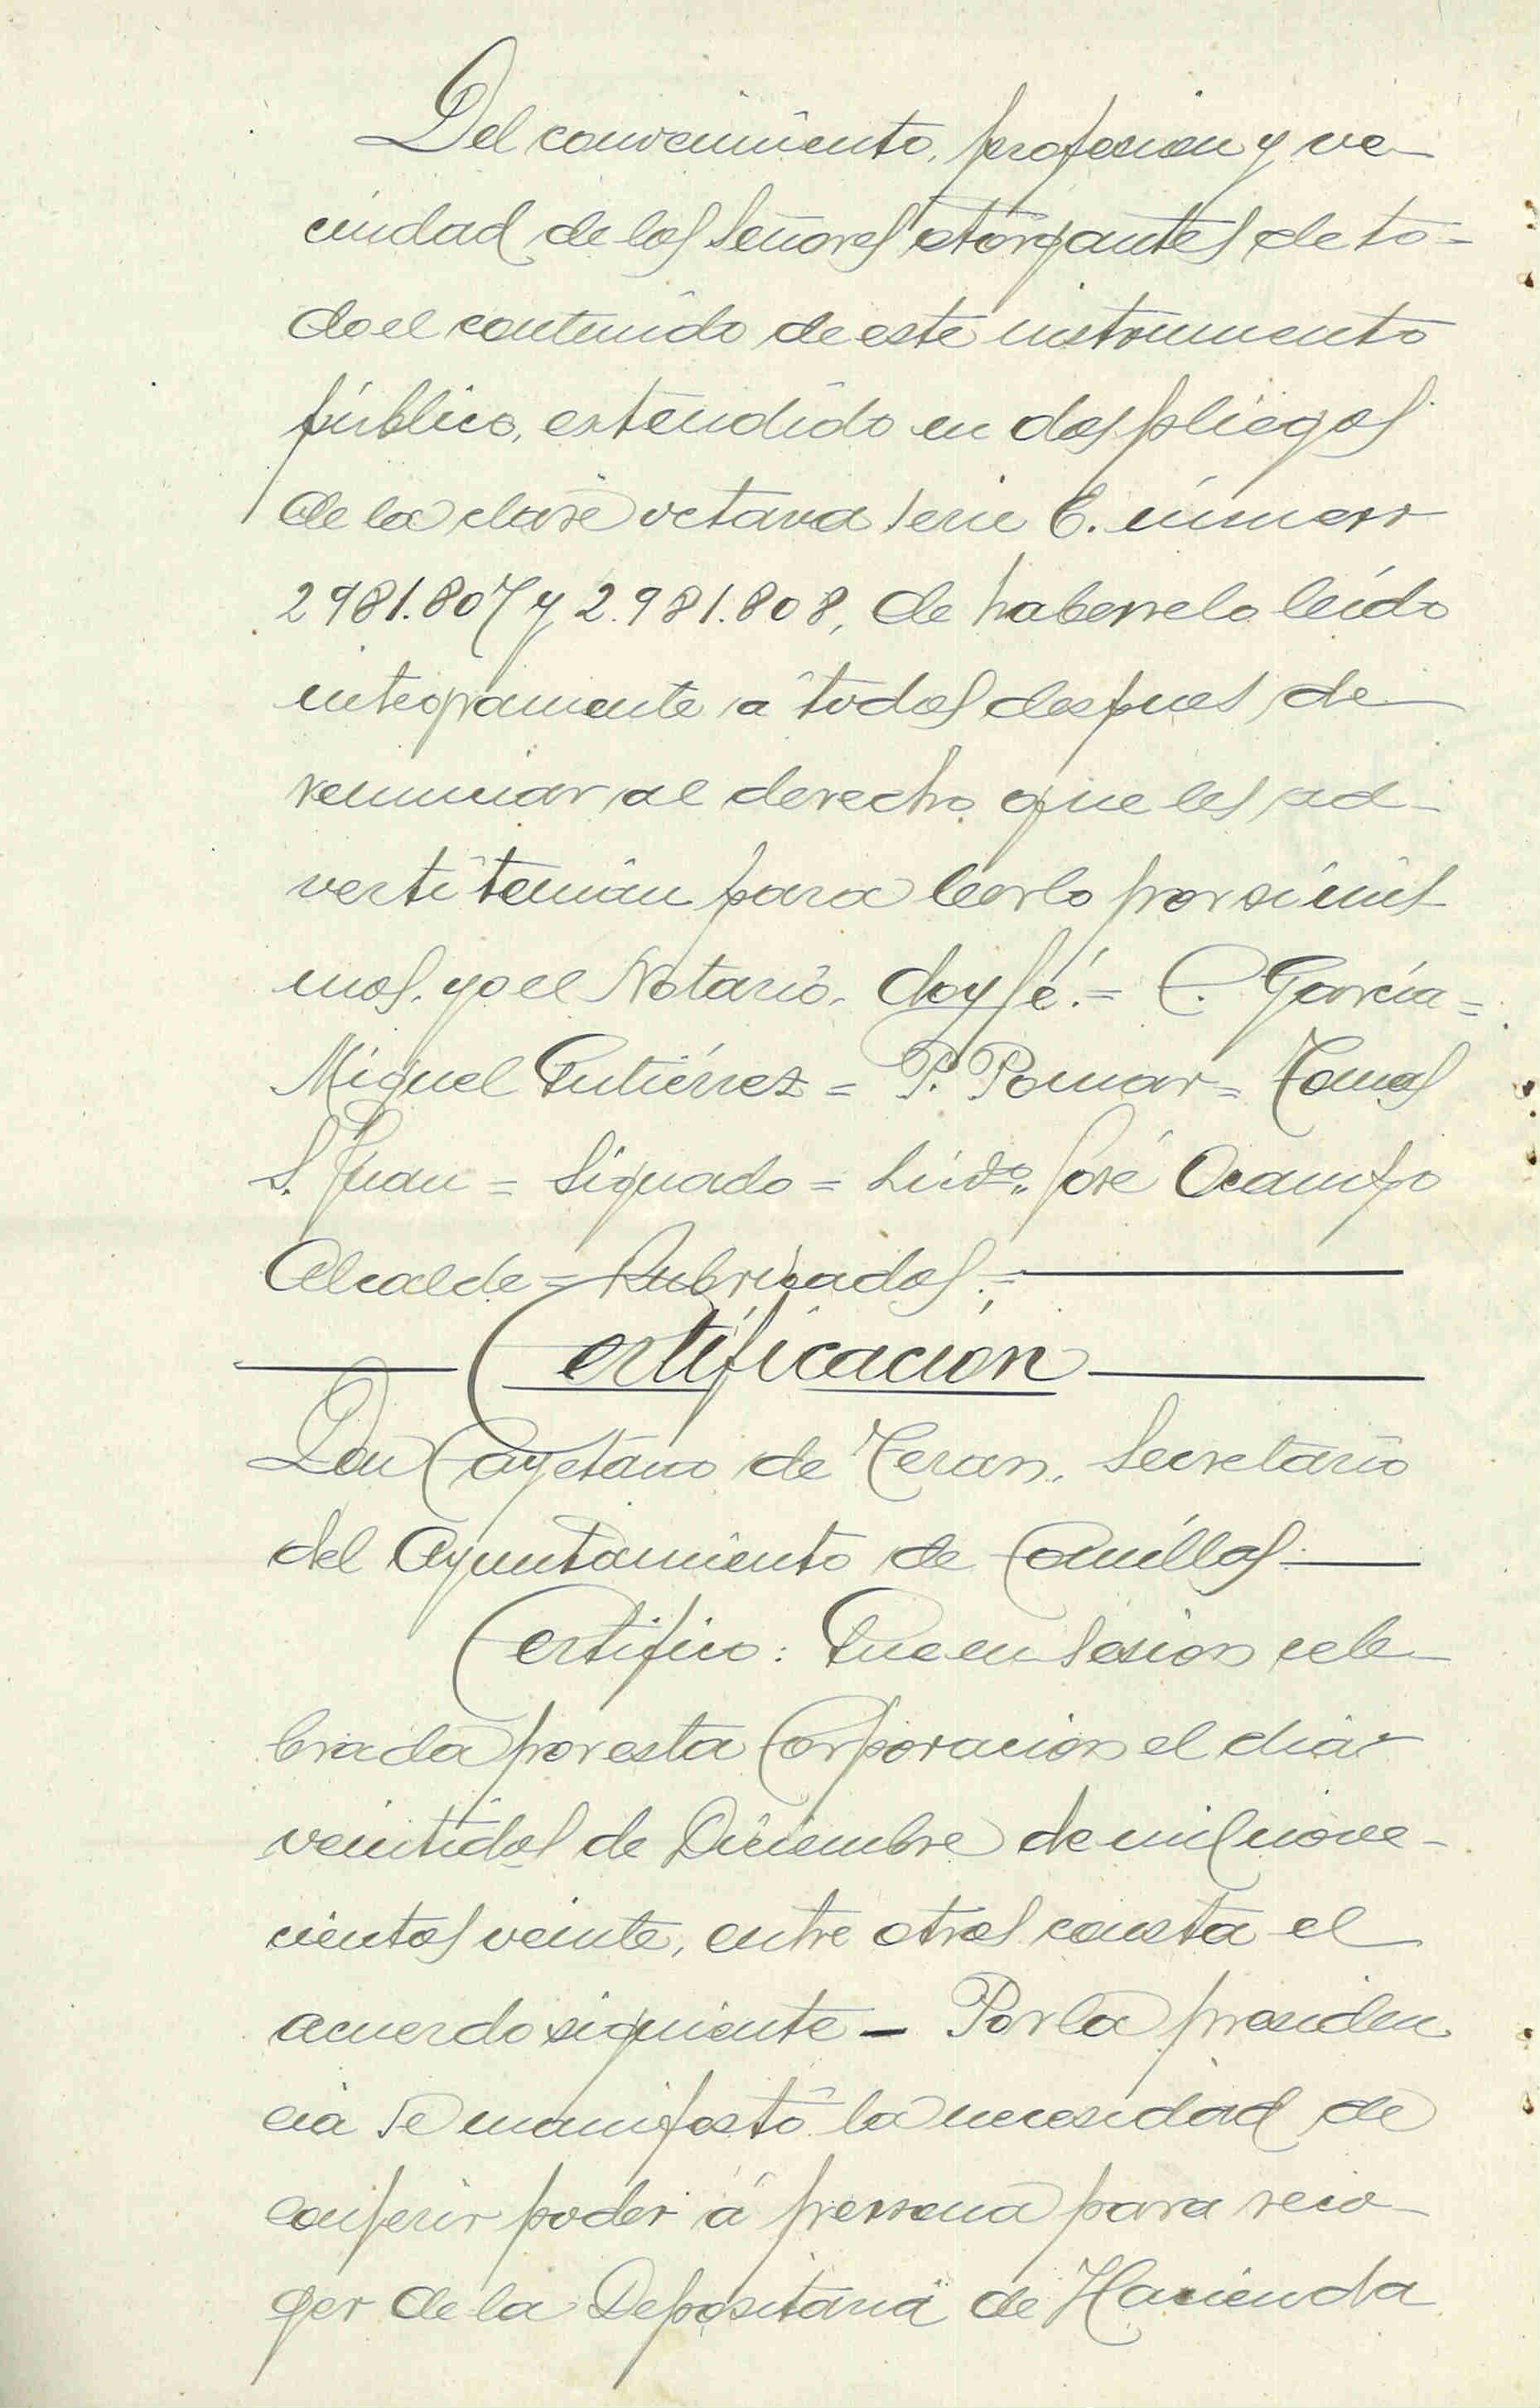 Del conocimiento, profesion y ve-
cindad de los Señores otorgantes de to-
do el contenido de este instrumento
público, extendido en dos pliegos
de la clase octava serie C. número
2981.807 y 2.981.808, de haberselo leído
integramente a todos despues de
renunciar al derecho que les ad-
vertí tenian para leerlo por si mis
mos, yo el Notario, doy fé.= C. García=
Miguel Gutiérrez = P. Pomar = Tomas
S. Juan = Signado = Licdo. José Ocampo
Alcalde = Rubricados =
Certificación
Don Cayetano de Teran, Secretario
del Ayuntamiento de Comillas
Certifico: Que en sesion cele-
brada por esta Corporacion el dia
veintidos de Diciembre de mil nove-
cientos veinte, entre otros consta el
acuerdo siguiente – Por la presiden
cia se manifestó la necesidad de
conferir poder á persona para reco-
ger de la Depositaria de Hacienda